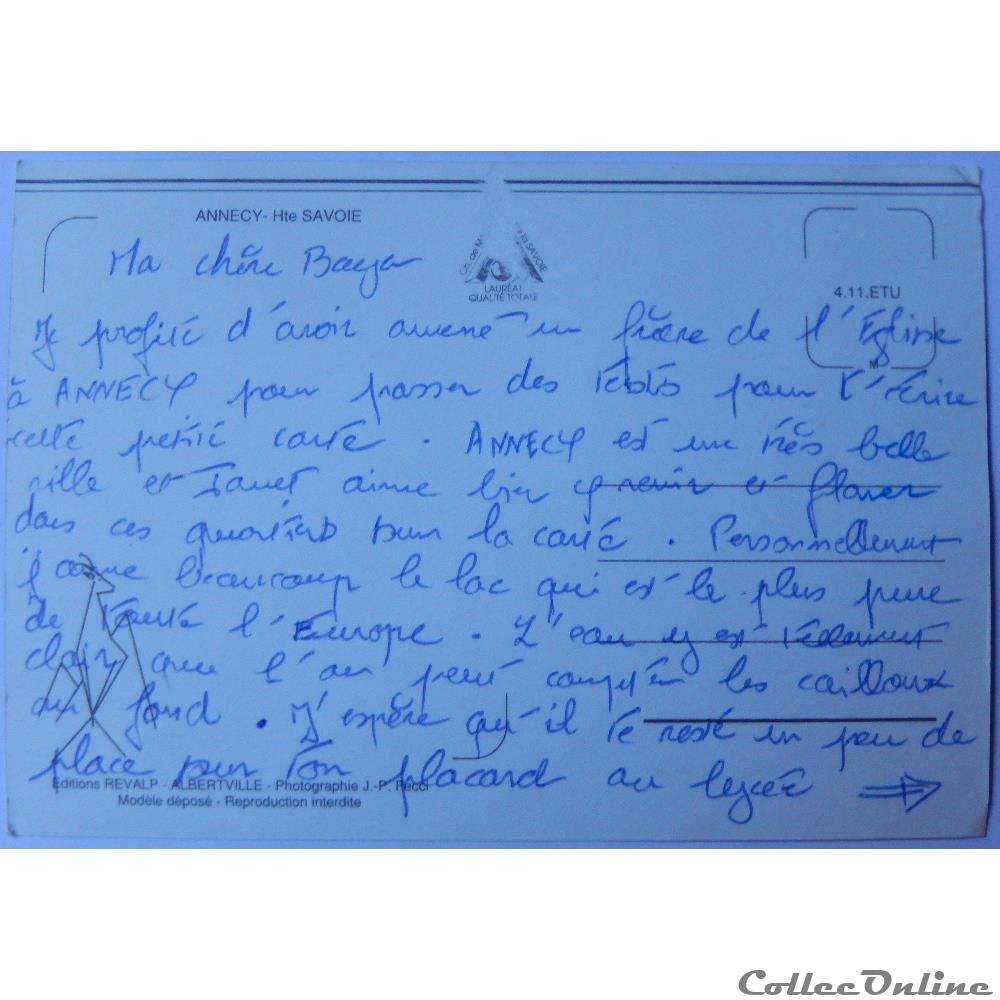 ANNECY- Hte SAVOIE
Ch. de M la SAVOIE
LAURÉAT
QUALITÉ TOTALE
4.11.ETU
M
Ma chère Baya
Je profite d'avoir amené un frère de l'Eglise
à ANNECY pour passer des tests pour t'écrire
cette petite carte. ANNECY est une très belle
ville et aime bien y venir et flaner
dans ces quartiers sur la carte. Personnellement
j'aime beaucoup le lac qui est le plus pure
de toute l'Europe. L'eau y est tellement
clair que l'on peut compter les cailloux
au fond. J'espère qu'il te reste un peu de
place sur ton placard au lycée ⇒
Editions REVALP - ALBERTVILLE - Photographie J.-P. Pecci
Modèle déposé - Reproduction interdite
CollecOnline